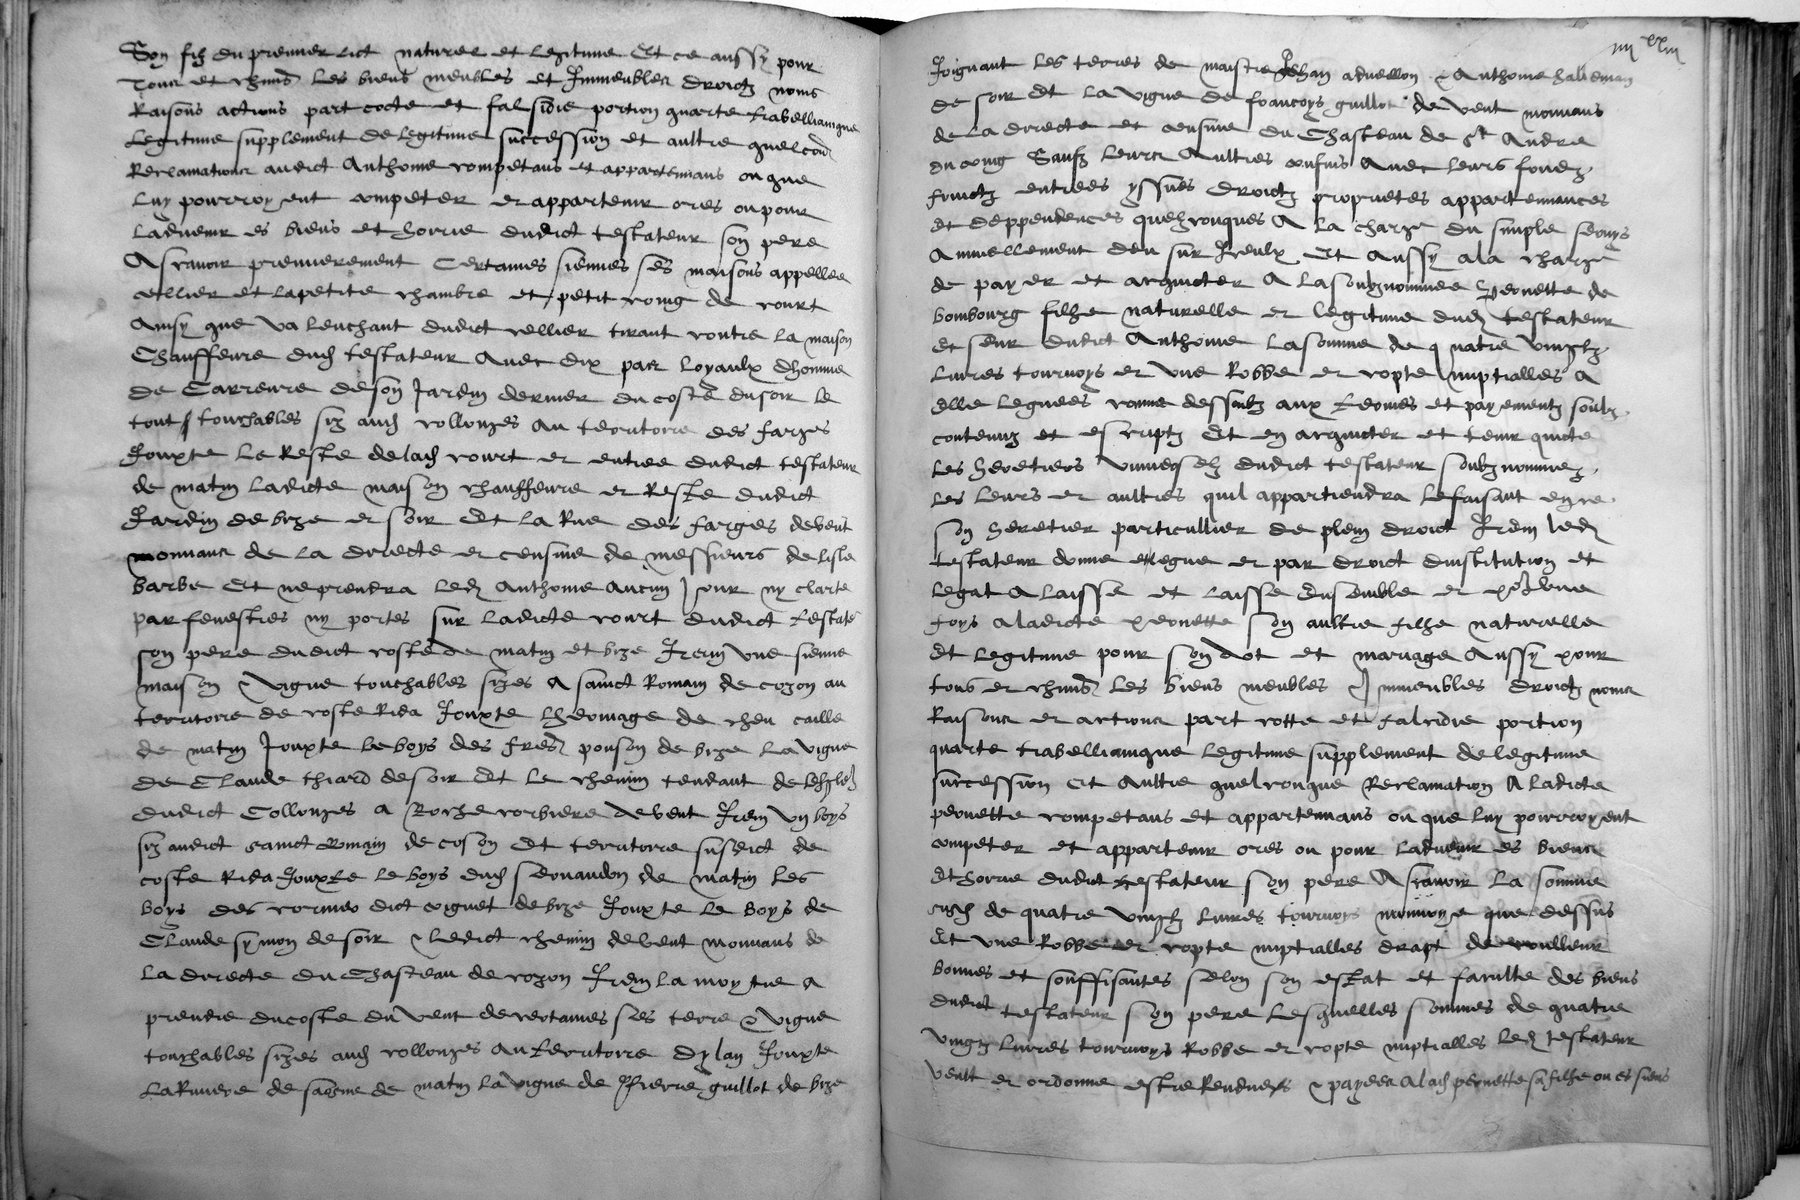 Son filz du premier lict naturel et legitime Et ce aussy pour
tous et chuns les biens meubles et Immeubles droictz noms
Raisons actions part cocte et falsidie portion quarte trabellianique
Legitime supplement de legitime succession et aultre quelconq
Reclamations audict Anthoine competans et appartenans ou que
luy pourroyent competer et appartenir ores ou pour
ladvenir es biens et horrie dudict testateur son pere
A scavoir premierement Certaines siennes ses maisons appellee
cellier et la petite chambre et petit coing de court
Ainsy que va lenchant dudict cellier tirant contre la maison
Chauffeure dud testateur Avec dix pas loyaulx dhomme
de Carreure de son Jardin dernier du coste du soir le
tout touchables siz aud collonges au territoire des farges
Jouxte le Reste de lad court et entree dudict testateur
de matin ladicte maison chauffeure et Reste dudict
Jardin de bize et soir Et la Rue des farges de vent
mouvans de la directe et censive de messieurs de lisle
barbe Et ne prendra led Anthoine Aucun Jour ny clarte
par fenestres ny portes sur ladicte court dudict testate
son pere dudict coste de matin et bize Item une sienne
maison & vigne touchables sizes A sainct Romain de cozon au
territoire de coste Rida Jouxte lheritage de cheu caille
de matin Jouxte le boys des fres ponson de bize la vigne
de Claude thiard de soir Et le chemin tendant de
dudict Collonges a Roche corbiere de vent Item un boys
siz audict sainct Romain de coson Et territoire susdict de
coste Rida Jouxte le boys dud de matin les
boys des dict coignet de bize Jouxte le boys de
Claude symon de soir & ledict chemin de vent mouvans de
la directe du Chasteau de cozon Item la moytie a
prendre du coste du vent de certaines ses terre & vigne
touchables sizes aud collonges au territoire dylan Jouxte
la Riviere de saosne de matin la vigne de Pierre guillot de bize
iiii xx iii
Joignant les terres de maistre Jehan & Anthoine
de soir Et la vigne de francoys guillot de vent mouvans
de la directe et censive du Chasteau de st Andre
du coing Saufz leurs Aultres confins Avec leurs fondz
fruictz entrees yssues droictz proprietes appartennances
et deppendences quelzconques A la charge du simple servis
Annuellement deu sur Iceulx Et Aussy a la charge
de payer et acquicter A la soubznommee Pernette de
bombourg filhe naturelle et legitime dud testateur
et seur dudict Anthoine la somme de quatre vingtz
livres tournoys et une Robbe et copte nuptialles A
elle leguees comme dessoubz aux termes et payementz soubz
contenuz et escriptz Et en acquicter et tenir quicte
les heretiers universelz dudict testateur soubznommez
les leurs et aultres quil appartiendra le faisant en ce
son heretier particullier de plein droict Item led
testateur donne et legue et par droict dinstitution et
legat A laisse et laisse Ensemble et pour une
foys a ladicte pernette son aultre filhe naturelle
Et legitime pour son dot et mariage Aussy pour
tous et chuns les biens meubles Immeubles droictz noms
Raisons et actions part cotte et falcidie portion
quarte trabellianique legitime supplement de legitime
succession Et Aultre quelconque Reclamation A ladicte
pernette competans et appartenans ou que luy pourroyent
competer et appartenir ores ou pour ladvenir es biens
Et horrie dudict testateur son pere A scavoir la somme
susd de quatre vingtz livres tournoys monnoye que dessus
Et une Robbe et copte nuptialles drapt de coulleur
bonnes et souffisantes selon son estat et faculte des biens
dudict testateur son pere Lesquelles sommes de quatre
vingtz livres tournoys Robbe et copte nuptialles led testateur
veult et ordonne estre Rendues & payees A lad pernette sa filhe ou es siens